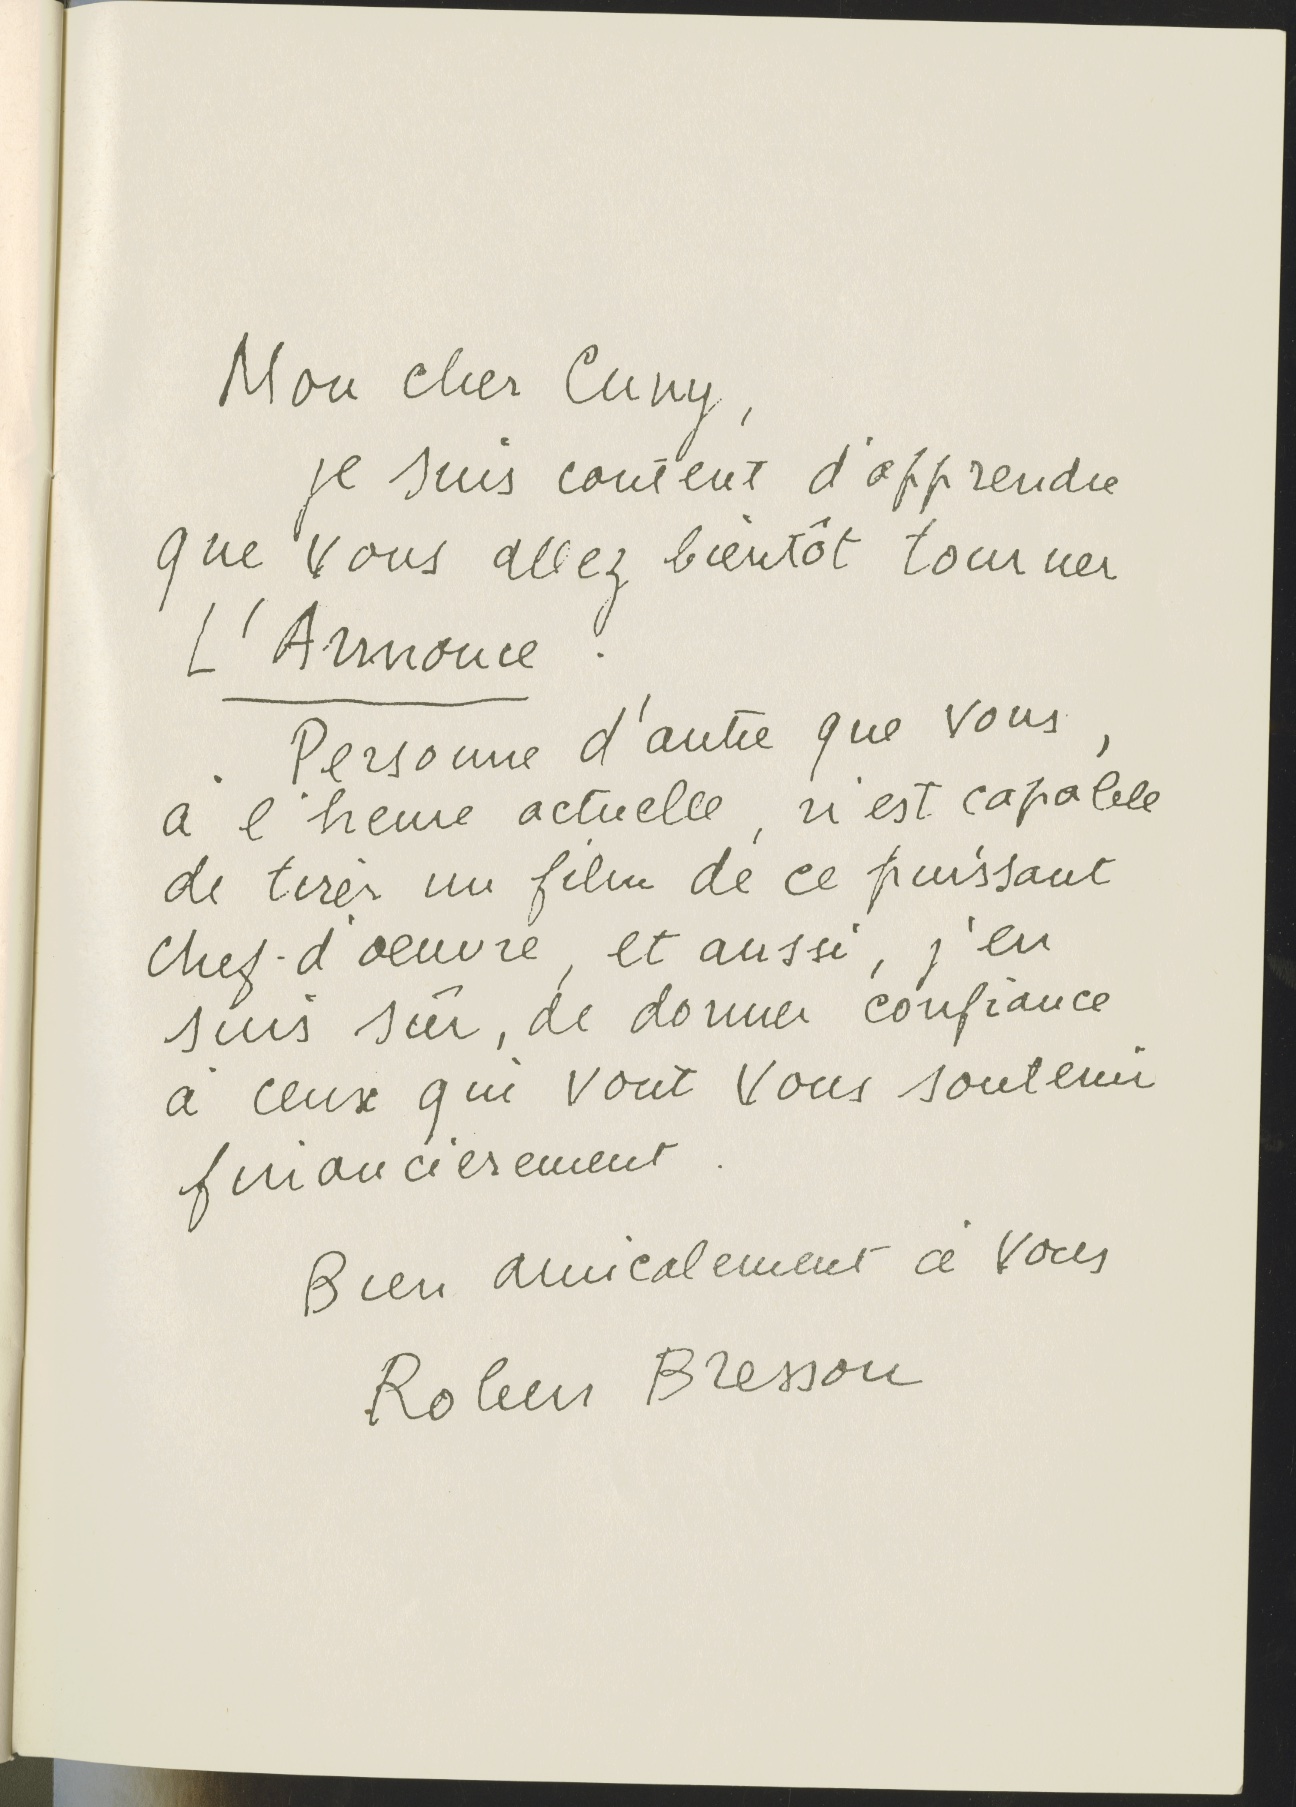 Mon cher Cuny,
je suis content d'apprendre
que vous allez bientôt tourner
L'Annonce.
Personne d'autre que vous,
à l'heure actuelle, n'est capable
de tirer un film de ce puissant
chef-d'oeuvre, et aussi, j'en
suis sûr, de donner confiance
à ceux qui vont vous soutenir
financièrement.
Bien amicalement à vous
Robert Bresson